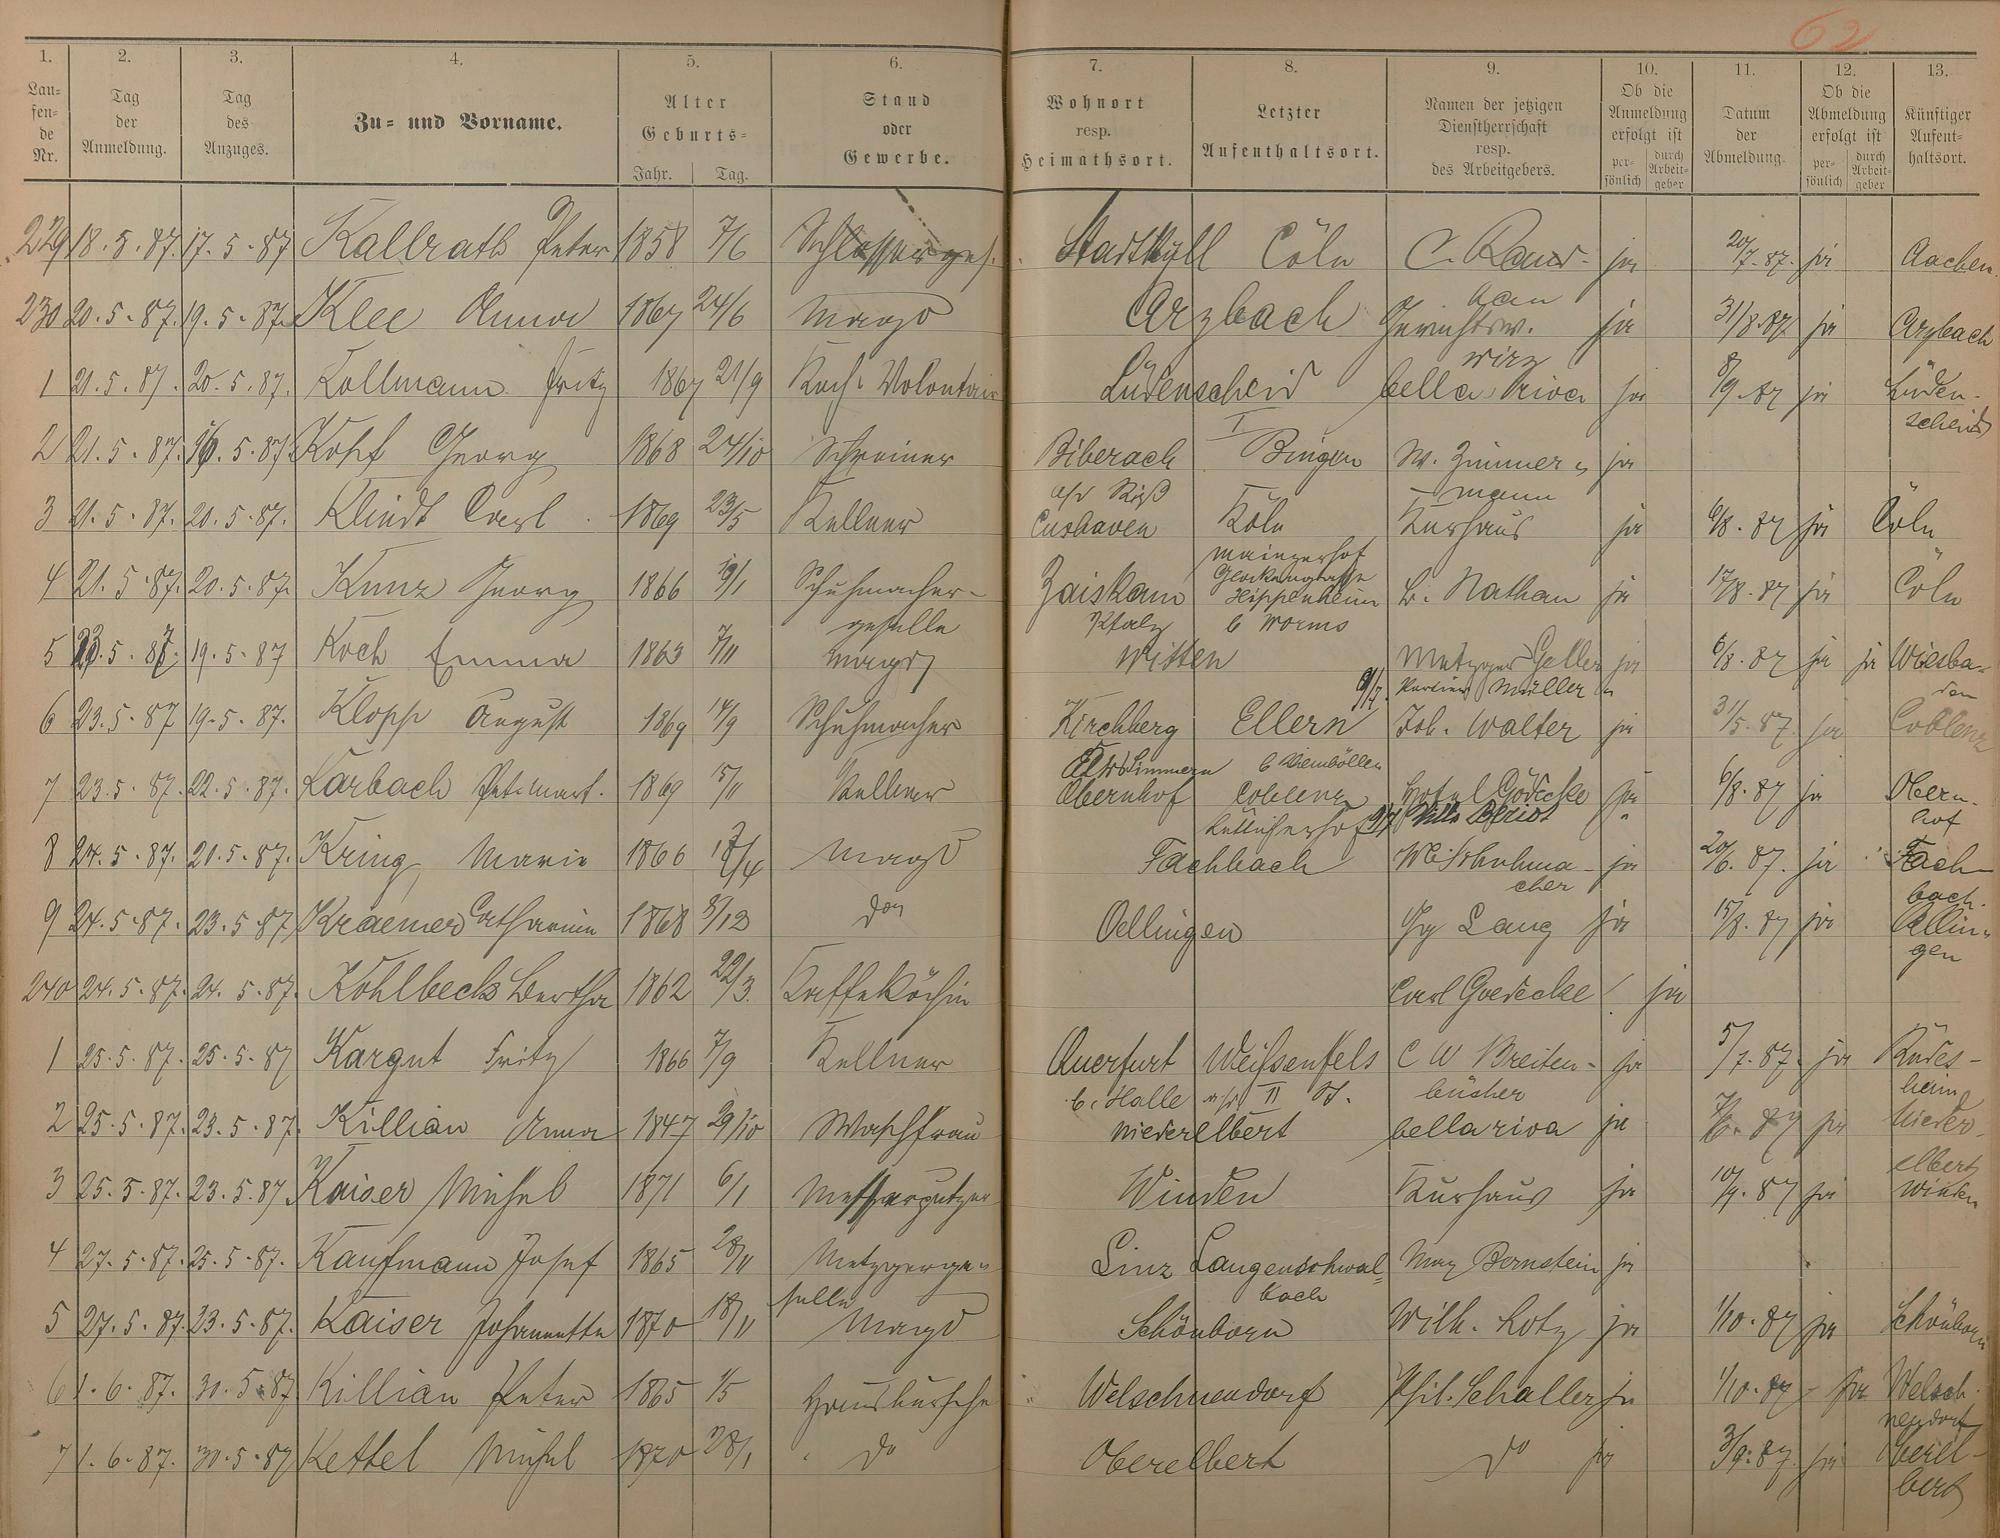 62
1. 2. 3. 4. 5. 6. 7. 8. 9. 10. 11. 12. 13.
Laufende Nr. Tag der Anmeldung. Tag des Anzuges. Zu= und Vorname. Alter Geburts= Jahr. Tag. Stand oder Gewerbe. Wohnort resp. Heimathsort. Letzter Aufenthaltsort. Namen der jetzigen Dienstherrschaft resp. des Arbeitgebers. Ob die Anmeldung erfolgt ist persönlich durch Arbeitgeber Datum der Abmeldung. Ob die Abmeldung erfolgt ist persönlich durch Arbeitgeber Künftiger Aufenthaltsort.
229 18.5.87. 17.5.87 Kallrath Peter 1858 7/6 Schlosserges. Stadtkyll Cöln C. ja 20/7.87. ja Aachen.
230 20.5.87. 19.5.87. Klee Anna 1867 24/6 Magd Arzbach ja 31/8.87. ja Arzbach
1 21.5.87. 20.5.87. Kollmann Fritz 1867 21/9 Koch-Volontair Lüdenscheid bella riva ja 8/9.87 ja Lüden-
scheid
2 21.5.87. 16.5.87 Kopf Georg 1868 24/10 Schreiner Biberach Bingen W. Zimmer= ja
a/d Riß mann
3 21.5.87. 20.5.87. Klindt Carl 1869 23/5 Kellner Cuxhaven Köln Kurhaus ja 6/8.87 ja Cöln
mainzerhof
Glockengasse
4 21.5.87. 20.5.87. Kunz Georg 1866 19/1 Schuhmacher- Zaiskam Heppenheim L. Nathan ja 17/8.87 ja Cöln
geselle Pfalz b Worms
5 23.5.87. 19.5.87 Koch Emma 1863 7/11 Magd Witten Metzger Geller ja 6/8.87 ja ja Wiesba-
9/7. Portier Müller den
6 23.5.87 19.5.87. Klopp August 1869 14/9 Schuhmacher Kirchberg Ellern Joh. Walter ja 31/5.87. ja Coblenz
Simmern b
7 23.5.87. 22.5.87. Karbach Pet. mart. 1869 15/11 Kellner Obernhof Coblenz Hotel Gödecke ja 6/8.87 ja Obern-
9/7 Villa Beriot hof
8 24.5.87. 21.5.87. Kring Marie 1866 Magd Fachbach ja 20/6.87. ja Fach-
cher bach.
9 24.5.87. 23.5.87 Kraemer Catharine 1868 3/12 do Oellingen Gg Lang ja 15/8.87 ja Oellin-
gen
240 24.5.87. 24.5.87. Kohlbecks Bertha 1862 22/3. Kaffeköchin Carl Goedecke ja
1 25.5.87. 25.5.87 Kargut Fritz 1866 7/9 Kellner Querfurt Weißenfels C W Breiten- ja 5/7.87. ja Rüdes-
b. Halle bücher heim
2 25.5.87. 23.5.87. Killian Anna 1847 29/10 Waschfrau Niederelbert bella riva ja 87 ja Nieder-
elbert
3 25.5.87. 23.5.87 Kaiser Michel 1871 6/1 Messerputzer Winden Kurhaus ja 10/9.87 ja Winden
4 27.5.87. 25.5.87. Kaufmann Josef 1865 28/11 Metzgerge= Linz Langenschwal= Max Bornstein ja
selle bach
5 27.5.87. 23.5.87. Kaiser Johannette 1870 18/11 Magd Schönborn Wilh. Lotz ja 1/10.87 ja Schönborn
6 1.6.87. 30.5.87 Killian Peter 1865 1/5 Hausbursche Welschneudorf Phil. Schaller ja 1/10.87 ja Welsch-
neudorf
7 1.6.87. 30.5.87 Kettel Michel 1870 28/1 do Oberelbert do ja 3/9.87. ja Oberel-
bert